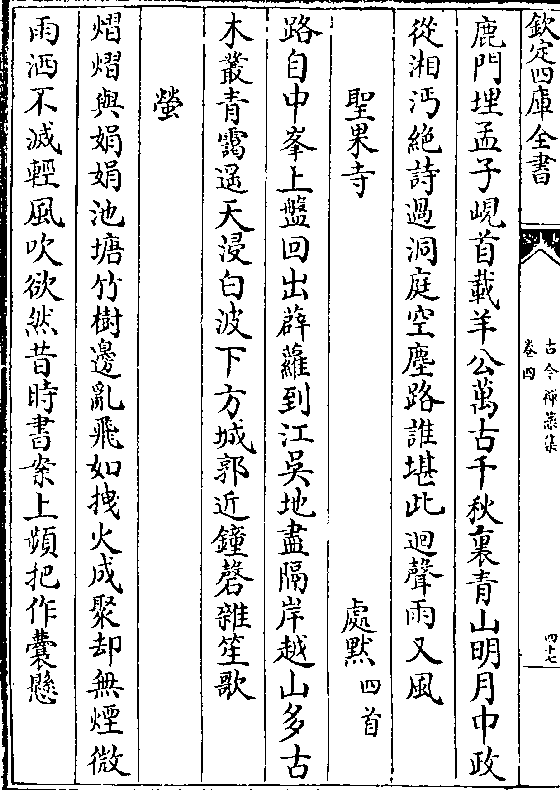 欽定四庫全書
古今禪藻集
卷四
四十七
鹿門埋孟子峴首載羊公萬古千秋裏青山明月中政
從湘沔絶詩過洞庭空塵路誰堪此迴聲雨又風
聖果寺 處黙四首
路自中峯上盤回出薜蘿到江吳地盡隔岸越山多古
木叢青靄遥天浸白波下方城郭近鐘磬雜笙歌
螢
熠熠與娟娟池塘竹樹邊亂飛如拽火成聚却無煙微
雨洒不滅輕風吹欲然昔時書案上頻把作囊懸